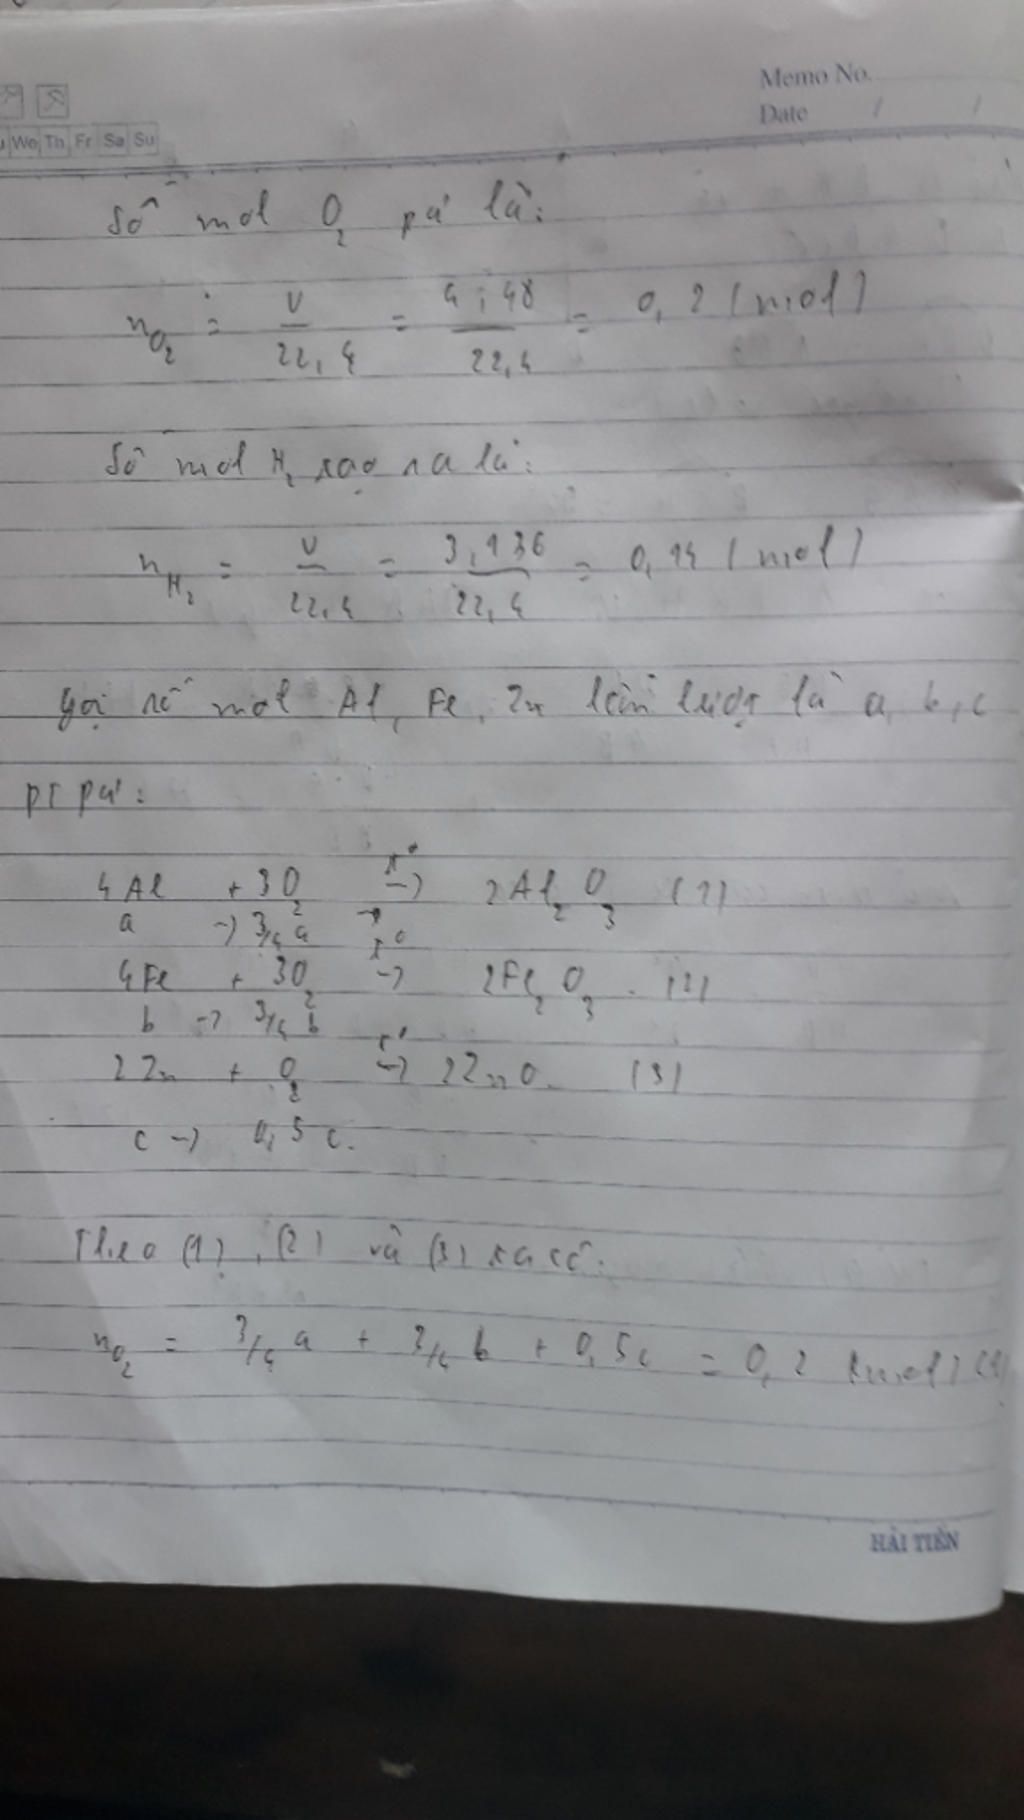 Memo No.
Date / /
We Th Fr Sa Su
Số mol O₂ pư là:
nO₂ = V/22,4 = 4,48/22,4 = 0,2 (mol)
Số mol H₂ tạo ra là:
nH₂ = V/22,4 = 3,136/22,4 = 0,14 (mol)
Gọi số mol Al, Fe, Zn lần lượt là a, b, c
PT pư:
4Al + 3O₂ t°→ 2Al₂O₃ (1)
a → 3/4 a
4Fe + 3O₂ t°→ 2Fe₂O₃. (2)
b → 3/4 b
2Zn + O₂ t°→ 2ZnO. (3)
c → 0,5c.
Theo (1), (2) và (3) ta có:
nO₂ = 3/4 a + 3/4 b + 0,5c = 0,2 (mol)
HẢI TIẾN